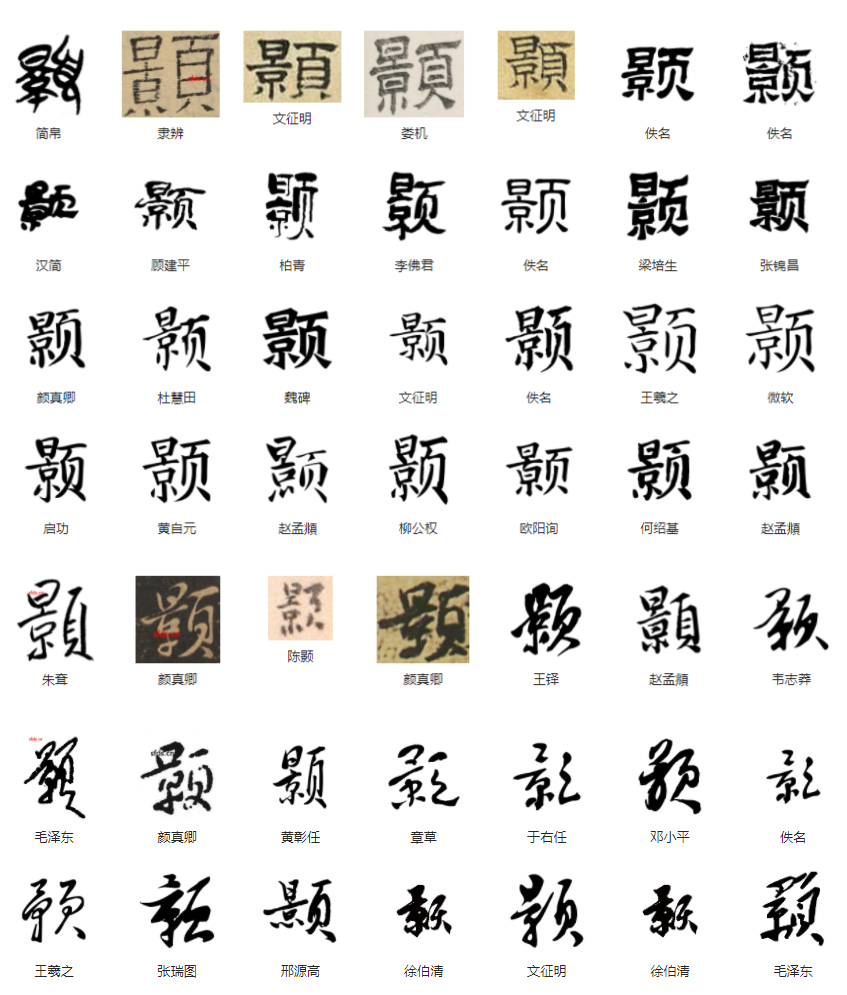 顥 顥 顥 顥 顥 颢 颢
简帛 隶辨 文征明 娄机 文征明 佚名 佚名
颢 颢 颢 颢 颢 颢 颢
汉简 顾建平 柏青 李佛君 佚名 梁培生 张锦昌
颢 颢 颢 颢 颢 颢 颢
颜真卿 杜慧田 魏碑 文征明 佚名 王羲之 微软
颢 颢 颢 颢 颢 颢 颢
启功 黄自元 赵孟頫 柳公权 欧阳询 何绍基 赵孟頫
顥 顥 颢 顥 颢 顥 颢
朱耷 颜真卿 陈颢 颜真卿 王铎 赵孟頫 韦志莽
顥 顥 颢 颢 颢 颢 颢
毛泽东 颜真卿 黄彰任 章草 于右任 邓小平 佚名
颢 颢 颢 颢 顥 颢 顥
王羲之 张瑞图 邢源高 徐伯清 文征明 徐伯清 毛泽东